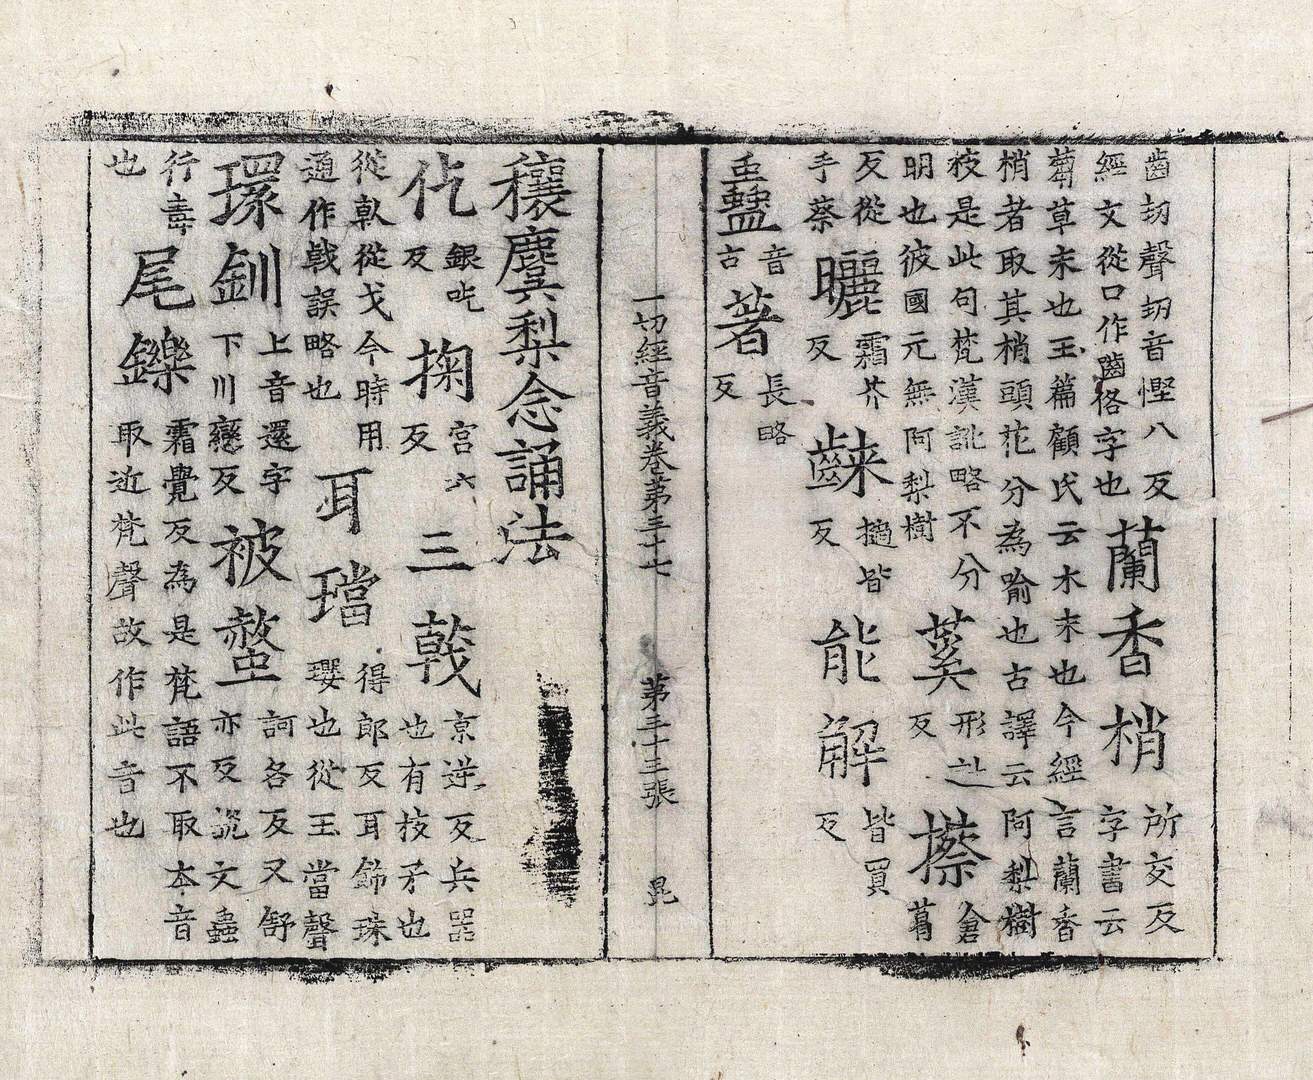 齒㓞聲㓞音慳八反
經文從口作齒客字也
蘭香梢
所交反
字書云
蔏草末也玉篇顧氏云木末也今經言蘭香
梢者取其梢頭花分為喻也古譯云阿梨樹
枝是此句梵漢訛略不分
明也彼國元無阿梨樹
荑
形之
反
㩟
倉
葛
反從
手蔡
曬
霜芥
反
齼
搋皆
反
能解
皆買
反
蠱
音
古
著
長略
反
一切經音義卷第三十七 第三十三張 昆
穰麌梨念誦法
仡
銀吃
反
掬
宮六
反
三戟
京逆反兵器
也有枝矛也
從倝從戈今時用
通作戟誤略也
耳璫
得郎反耳飾珠
瓔也從玉當聲
環釧
上音還字
下川戀反
被螫
訶各反又舒
亦反說文蟲
行毒
也
尾鑠
霜覺反為是梵語不取本音
取近梵聲故作此音也